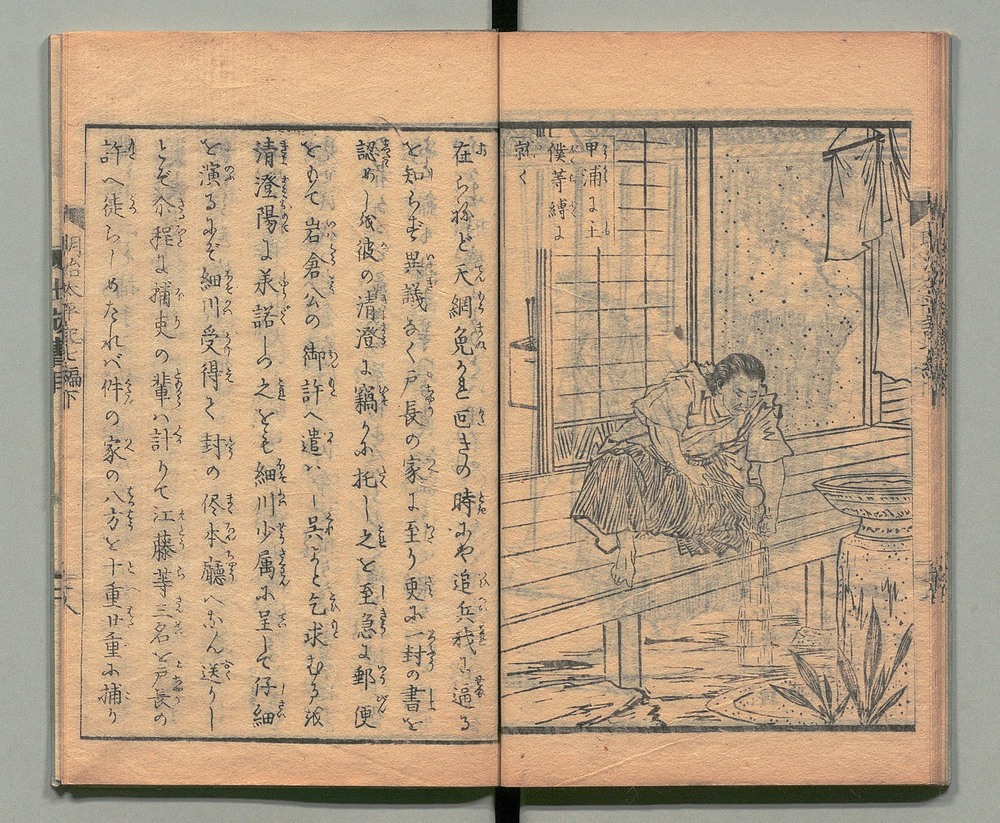 甲浦に主
僕等縛に
就く
在らねど天網免かれ回きの時にや追兵我に逼る
を知らず異議なく戸長の家に至り更に一封の書を
認めしを彼の清澄に竊かに托し之を至急に郵便
をもて岩倉公の御許へ遣はし呉よと乞求むるを
清澄陽に承諾しつ之をも細川少属に呈して仔細
を演るにぞ細川受得て封の侭本廳へなん送りし
とぞ余程に捕吏の輩は計りて江藤等三名を戸長の
許へ徒らしめたれバ件の家の八方を十重廿重に捕り
明治太平記七編下